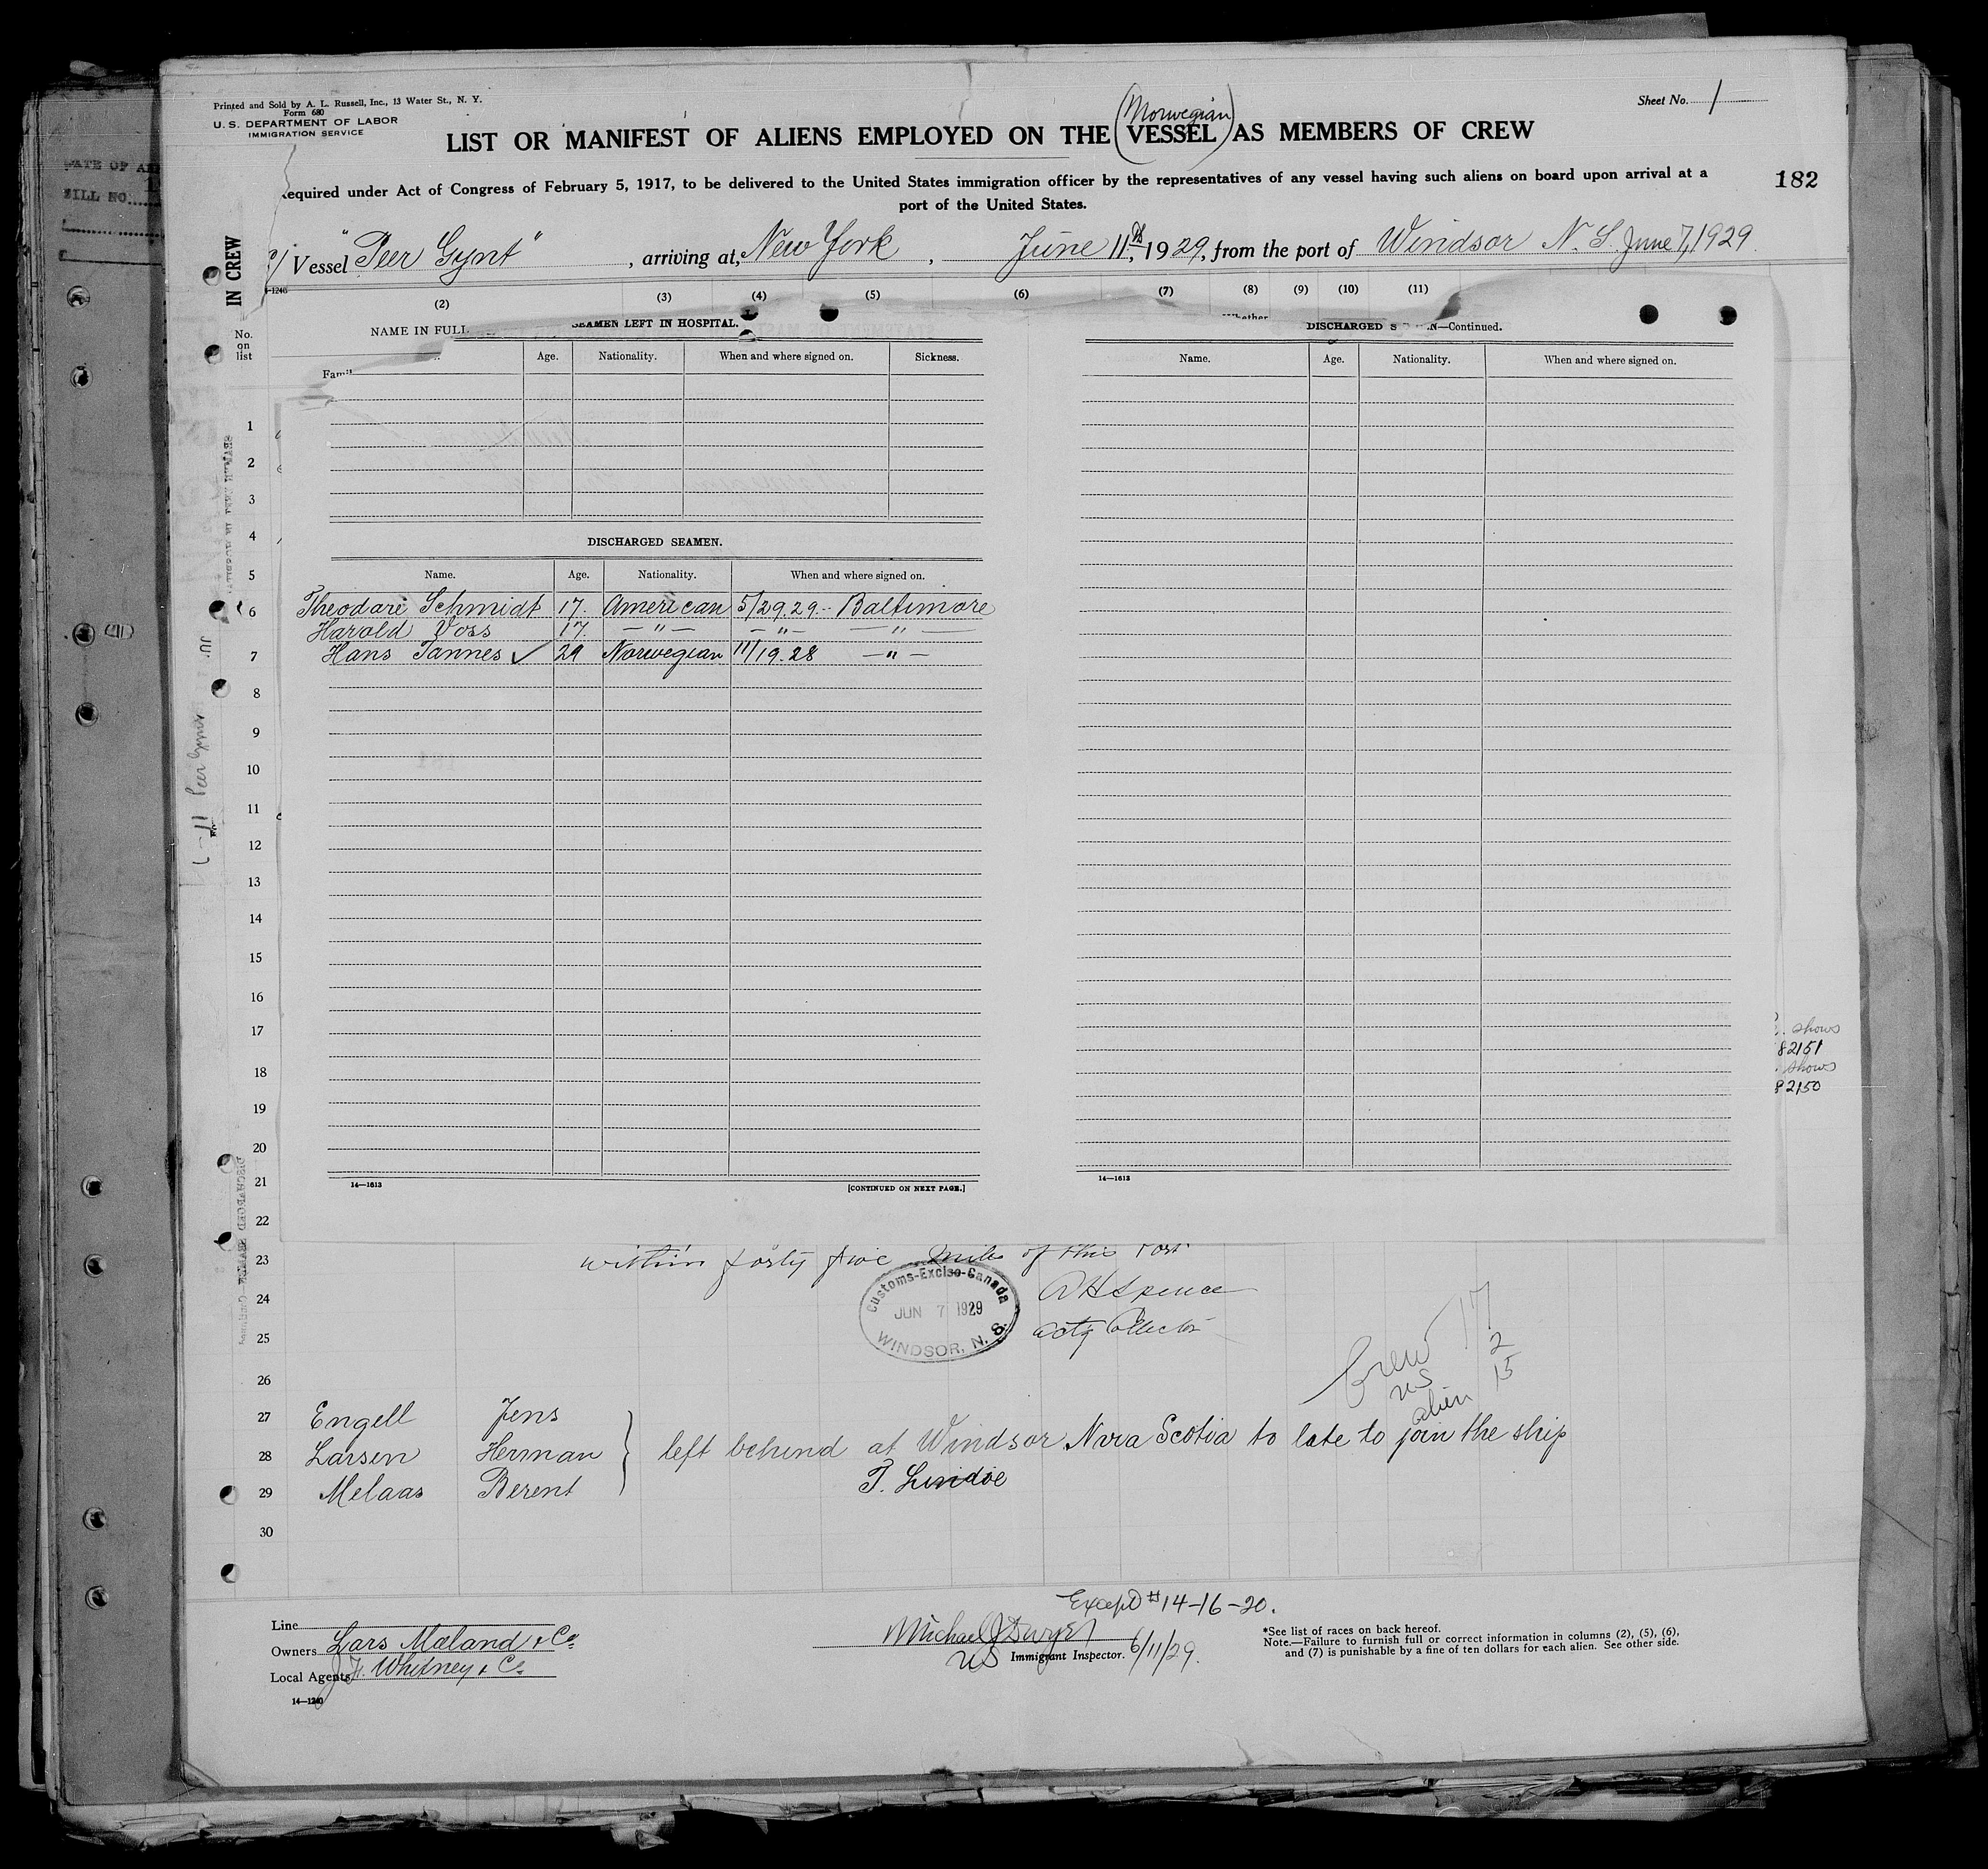 Printed and Sold by A. L. Russell, Inc., 13 Water St., N. Y.
Form 680
U. S. DEPARTMENT OF LABOR
IMMIGRATION SERVICE
Sheet No. 1
(Norwegian)
LIST OR MANIFEST OF ALIENS EMPLOYED ON THE VESSEL AS MEMBERS OF CREW
equired under Act of Congress of February 5, 1917, to be delivered to the United States immigration officer by the representatives of any vessel having such aliens on board upon arrival at a
port of the United States.
182
Vessel "Peer Gynt", arriving at, New York, June 11th, 1929, from the port of Windsor N. S. June 7, 1929
IN CREW
(2) (3) (4) (5) (6) (7) (8) (9) (10) (11)
No. on list
NAME IN FULL
Whether
SEAMEN LEFT IN HOSPITAL.
Age. Nationality. When and where signed on. Sickness.
DISCHARGED SEAMEN.
Name. Age. Nationality. When and where signed on.
Theodore Schmidt 17. American 5/29.29.- Baltimore
Harold Voss 17. -"- -"- -"-
Hans Tannes ✓ 29 Norwegian 11/19.28 -"-
14—1613 [CONTINUED ON NEXT PAGE.]
DISCHARGED S N—Continued.
Name. Age. Nationality. When and where signed on.
14—1613
1
2
3
4
5
6
7
8
9
10
11
12
13
14
15
16
17
18
19
20
21
22
23
24
25
26
27
28
29
30
shows
82151
shows
82150
within forty five miles of this Port
Customs-Excise-Canada
JUN 7 1929
WINDSOR, N. S.
Actg Collector
Crew 17
US 2
alien 15
Engell Jens
Larsen Herman
Melaas Berent
left behind at Windsor Nova Scotia to late to join the ship
T. Lindoe
Except #14-16-20.
Line
Owners Lars Maland & Co.
Local Agents J. F. Whitney & Co.
14—1240
Michael J Dwyer
US Immigrant Inspector. 6/11/29.
*See list of races on back hereof.
Note.—Failure to furnish full or correct information in columns (2), (5), (6),
and (7) is punishable by a fine of ten dollars for each alien. See other side.